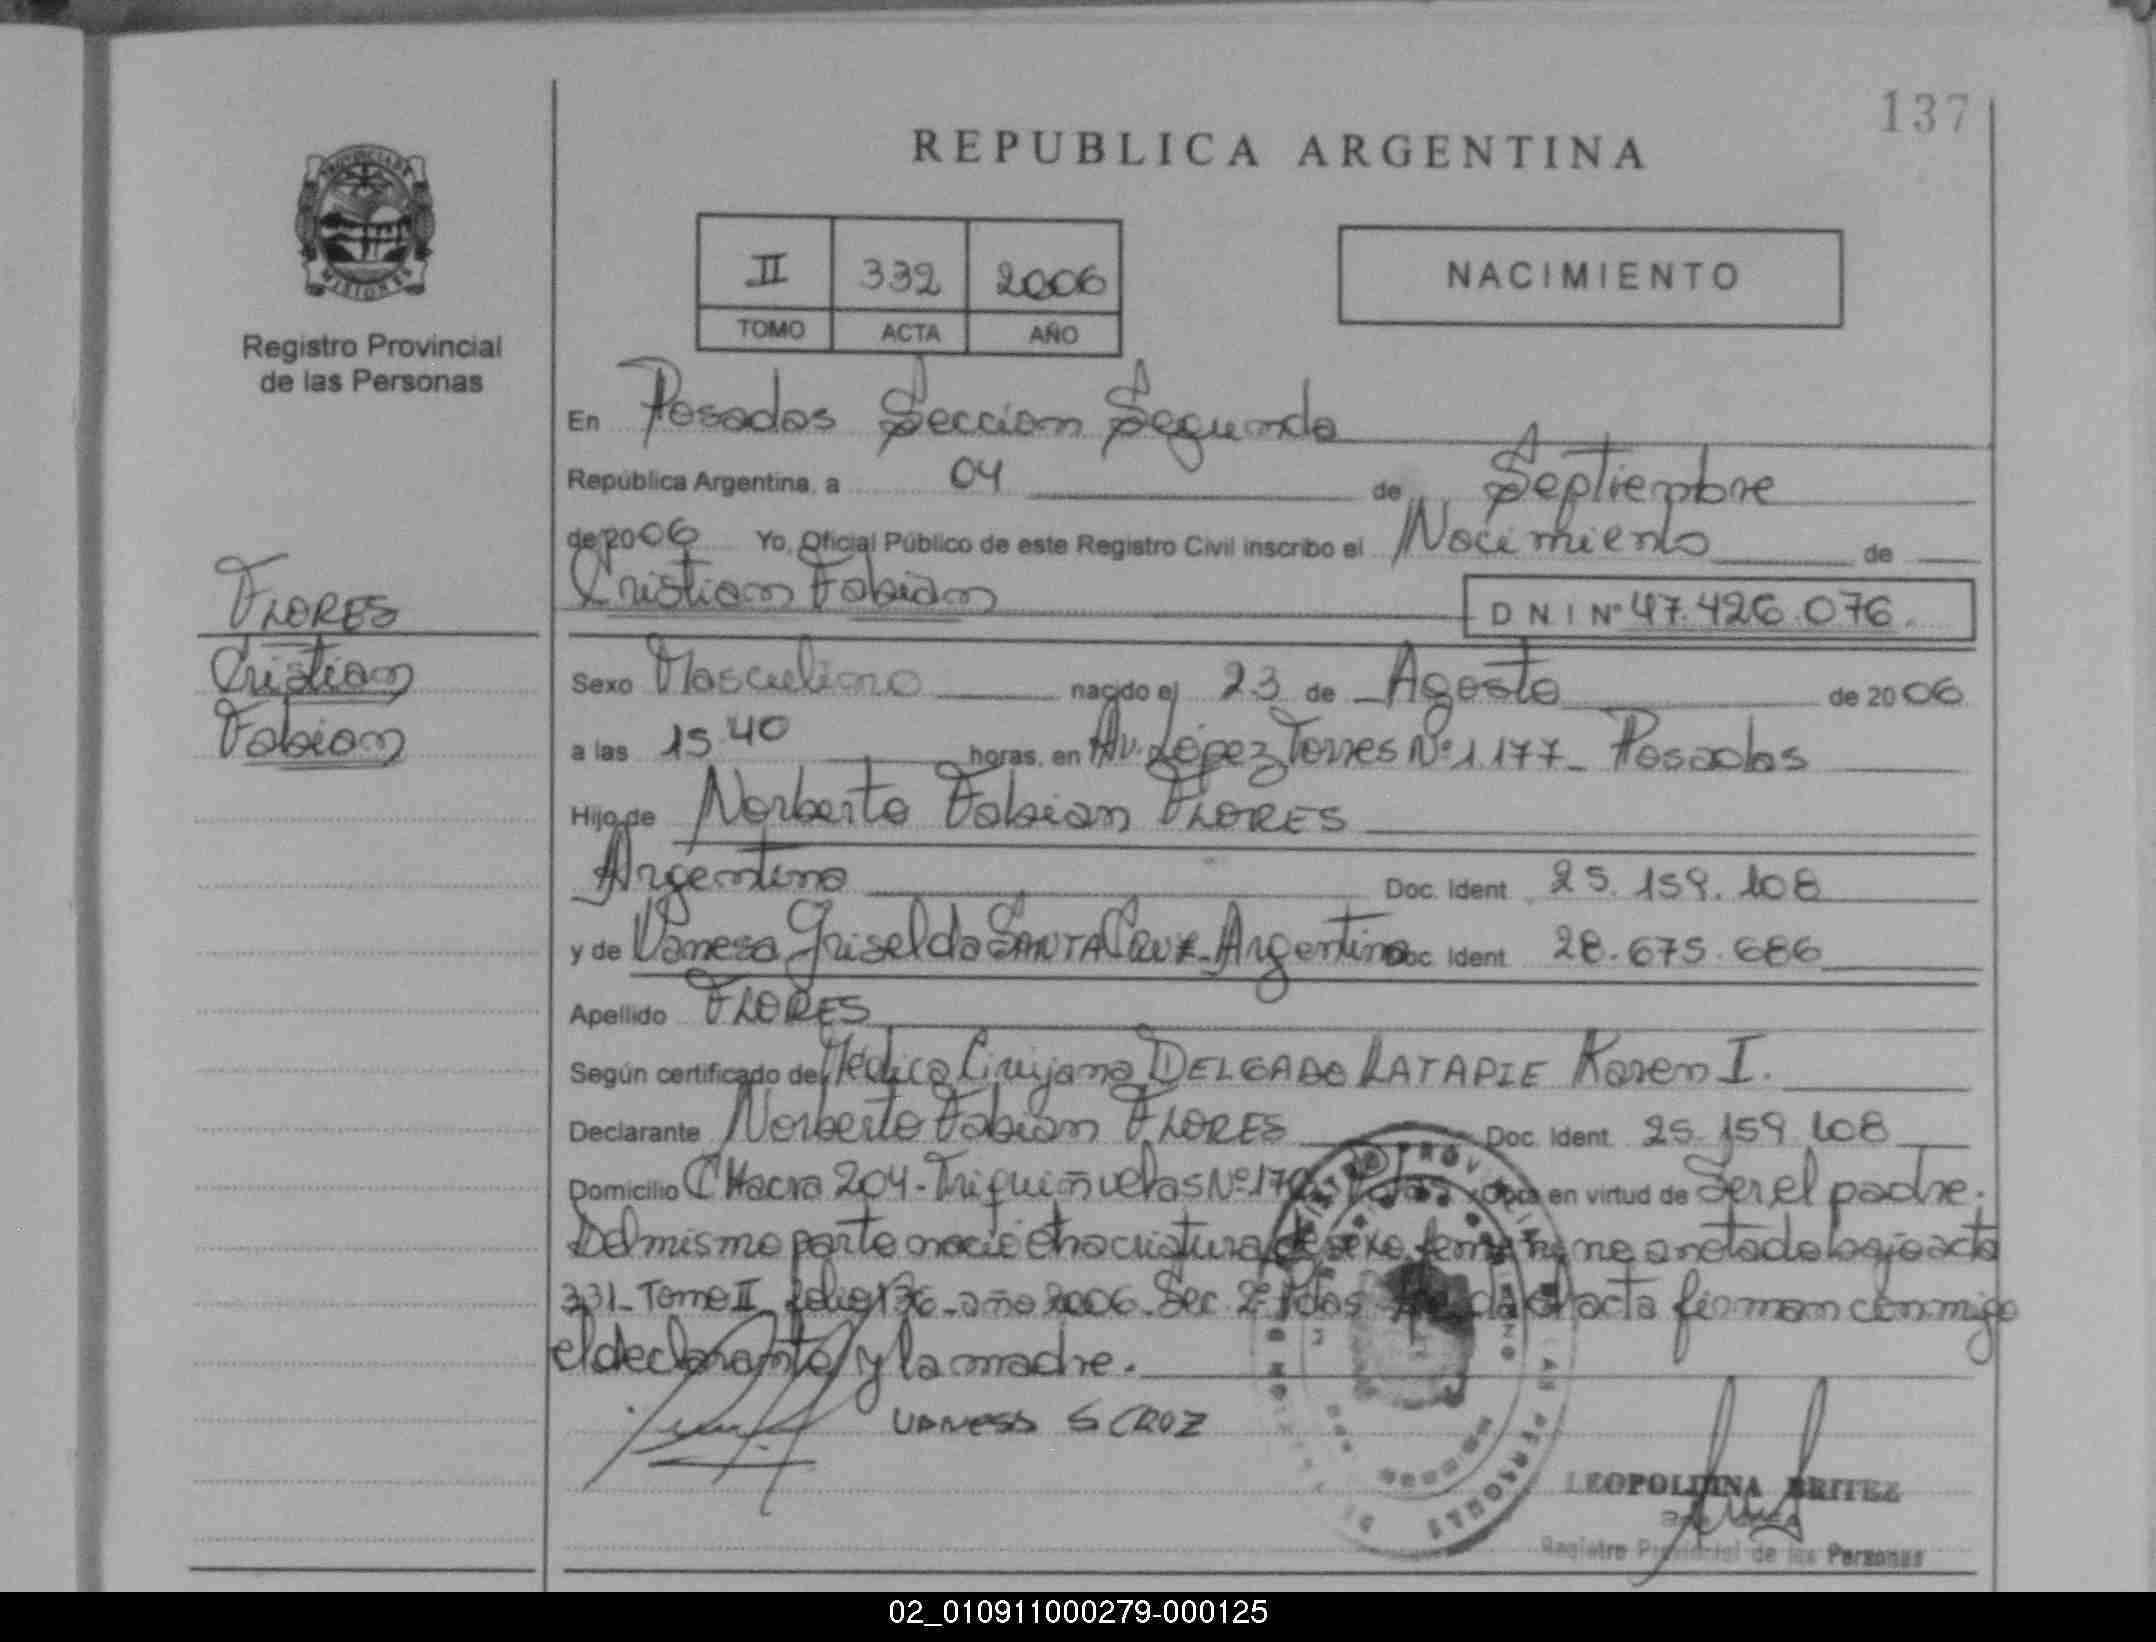 137
REPUBLICA ARGENTINA
PROVINCIA DE
MISIONES
Registro Provincial
de las Personas
II 332 2006
TOMO ACTA AÑO
NACIMIENTO
En Posadas Sección Segunda
República Argentina, a 04 de Septiembre
de 2006 Yo, Oficial Público de este Registro Civil inscribo el Nacimiento de
Cristian Fabián
DNI Nº 47.426.076.
FLORES
Cristian
Fabian
Sexo Masculino nacido el 23 de Agosto de 2006
a las 15:40 horas, en Av. López Torres Nº 1177- Posadas
Hijo de Norberto Fabian FLORES
Argentino Doc. Ident. 25.159.108
y de Vanesa Griselda SANTA CRUZ- Argentina Doc. Ident. 28.675.686
Apellido FLORES
Según certificado de Médica Cirujana DELGADO LATAPIE Karen I.
Declarante Norberto Fabian FLORES Doc. Ident. 25.159.108
Domicilio CHacra 204- Nº 170 en virtud de Ser el padre.
Del mismo parto nació otra criatura de sexo femenino anotado bajo acta
331- Tomo II folio 136- año 2006- Sec. 2º Pdas el acta firman conmigo
el declarante y la madre.
VANESA S CRUZ
LEOPOLDINA BRITEZ
Registro Provincial de las Personas
02_010911000279-000125